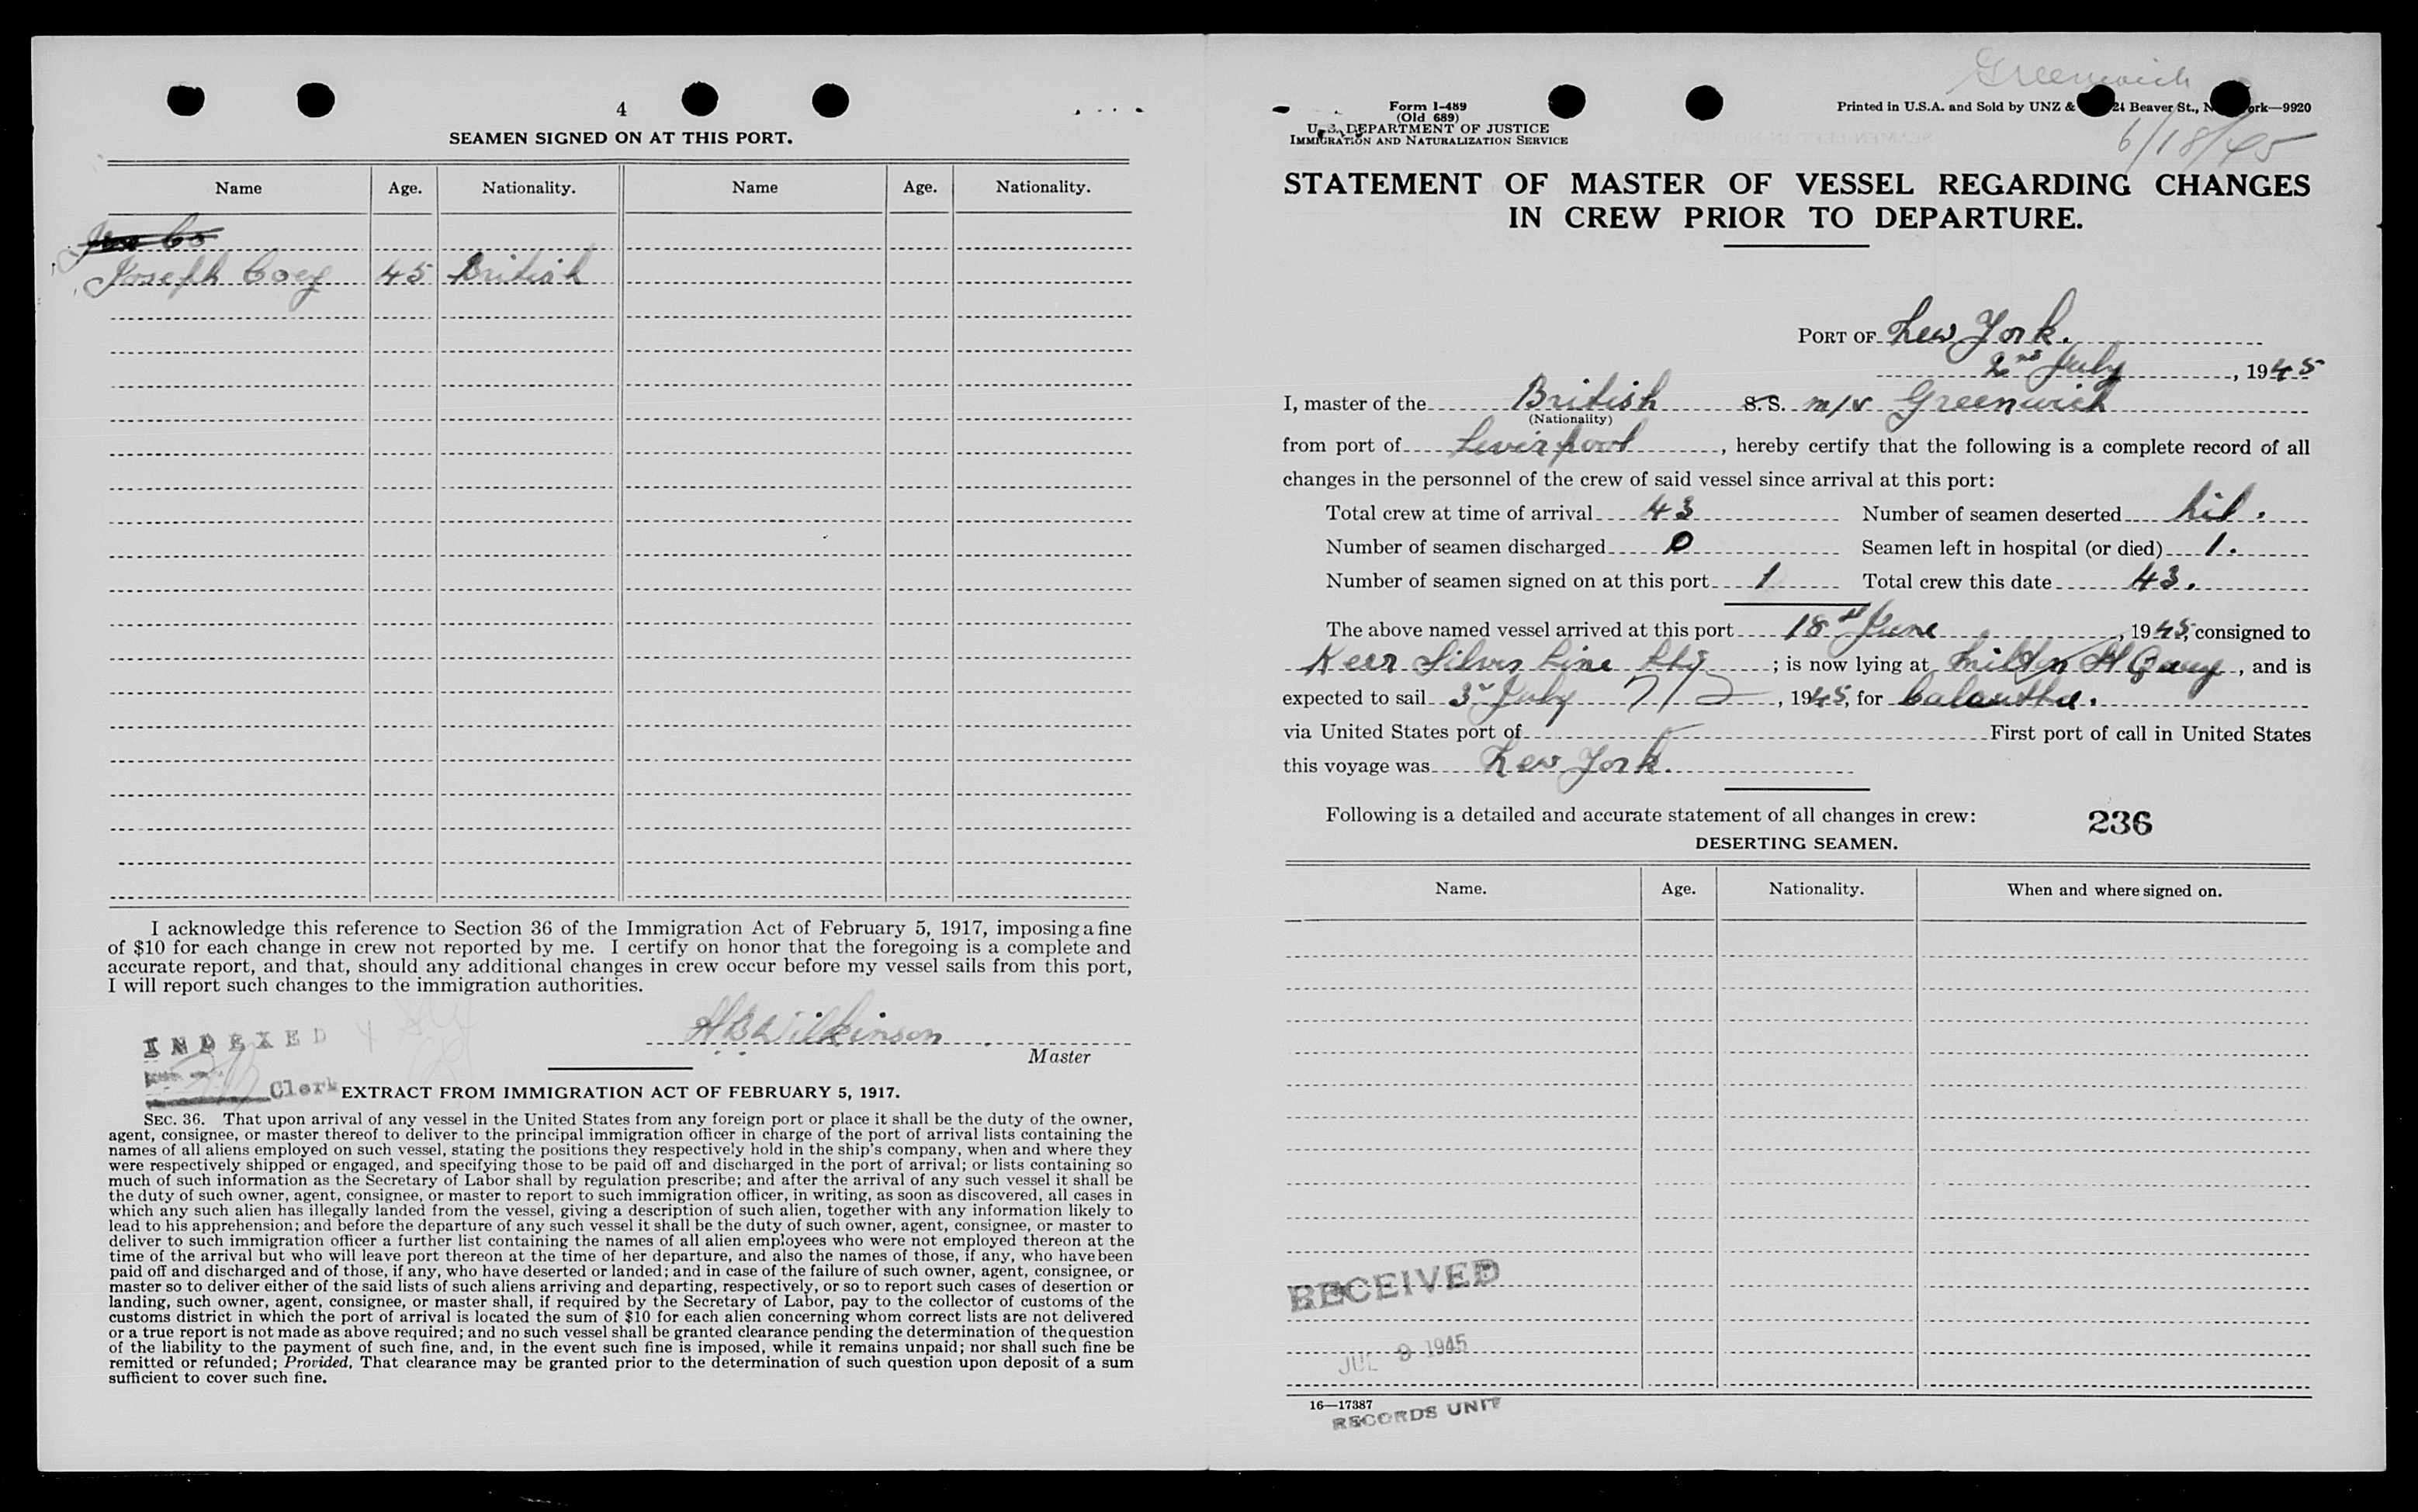 4
SEAMEN SIGNED ON AT THIS PORT.
Name Age. Nationality. Name Age. Nationality.
Joseph Coey 45 British
I acknowledge this reference to Section 36 of the Immigration Act of February 5, 1917, imposing a fine
of $10 for each change in crew not reported by me. I certify on honor that the foregoing is a complete and
accurate report, and that, should any additional changes in crew occur before my vessel sails from this port,
I will report such changes to the immigration authorities.
H B Wilkinson
Master
INDEXED
Clerk
EXTRACT FROM IMMIGRATION ACT OF FEBRUARY 5, 1917.
SEC. 36. That upon arrival of any vessel in the United States from any foreign port or place it shall be the duty of the owner,
agent, consignee, or master thereof to deliver to the principal immigration officer in charge of the port of arrival lists containing the
names of all aliens employed on such vessel, stating the positions they respectively hold in the ship's company, when and where they
were respectively shipped or engaged, and specifying those to be paid off and discharged in the port of arrival; or lists containing so
much of such information as the Secretary of Labor shall by regulation prescribe; and after the arrival of any such vessel it shall be
the duty of such owner, agent, consignee, or master to report to such immigration officer, in writing, as soon as discovered, all cases in
which any such alien has illegally landed from the vessel, giving a description of such alien, together with any information likely to
lead to his apprehension; and before the departure of any such vessel it shall be the duty of such owner, agent, consignee, or master to
deliver to such immigration officer a further list containing the names of all alien employees who were not employed thereon at the
time of the arrival but who will leave port thereon at the time of her departure, and also the names of those, if any, who have been
paid off and discharged and of those, if any, who have deserted or landed; and in case of the failure of such owner, agent, consignee, or
master so to deliver either of the said lists of such aliens arriving and departing, respectively, or so to report such cases of desertion or
landing, such owner, agent, consignee, or master shall, if required by the Secretary of Labor, pay to the collector of customs of the
customs district in which the port of arrival is located the sum of $10 for each alien concerning whom correct lists are not delivered
or a true report is not made as above required; and no such vessel shall be granted clearance pending the determination of the question
of the liability to the payment of such fine, and, in the event such fine is imposed, while it remains unpaid; nor shall such fine be
remitted or refunded; Provided, That clearance may be granted prior to the determination of such question upon deposit of a sum
sufficient to cover such fine.
Greenwich
Form I-489
(Old 689)
U. S. DEPARTMENT OF JUSTICE
IMMIGRATION AND NATURALIZATION SERVICE
Printed in U.S.A. and Sold by UNZ & 24 Beaver St., New York—9920
6/18/45
STATEMENT OF MASTER OF VESSEL REGARDING CHANGES
IN CREW PRIOR TO DEPARTURE.
PORT OF New York.
2nd July, 1945
I, master of the British S.S. m/v Greenwich
(Nationality)
from port of Liverpool, hereby certify that the following is a complete record of all
changes in the personnel of the crew of said vessel since arrival at this port:
Total crew at time of arrival 43 Number of seamen deserted nil.
Number of seamen discharged 0 Seamen left in hospital (or died) 1.
Number of seamen signed on at this port 1 Total crew this date 43.
The above named vessel arrived at this port 18th June, 1945, consigned to
Kerr Silver Line; is now lying at Milton, and is
expected to sail 3rd July 7/2, 1945, for Calcutta.
via United States port of First port of call in United States
this voyage was New York.
Following is a detailed and accurate statement of all changes in crew:
236
DESERTING SEAMEN.
Name. Age. Nationality. When and where signed on.
RECEIVED
JUL 9 1945
16—17387
RECORDS UNIT